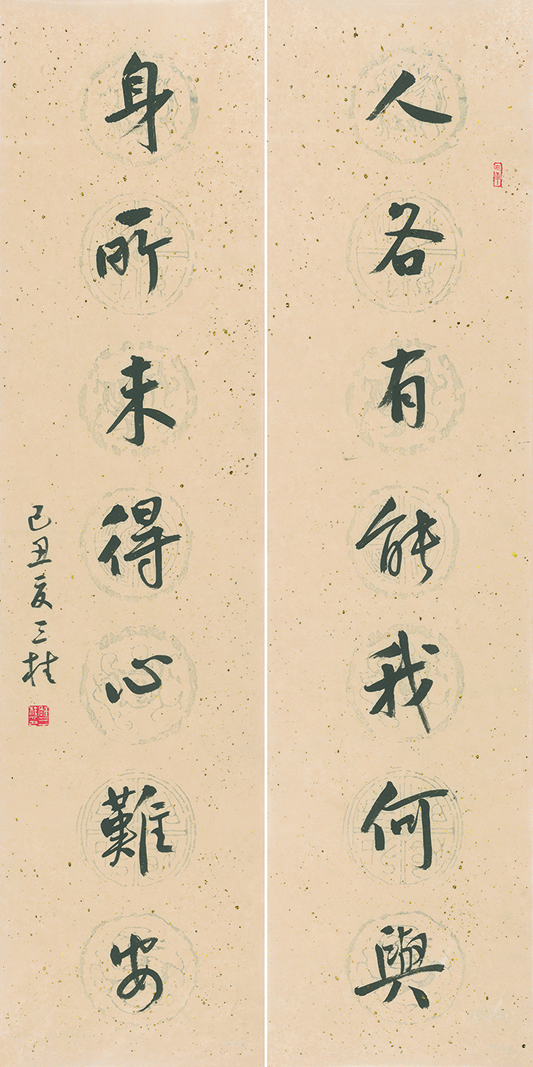 人各有能我何與
身所未得心難安
己丑夏三桂